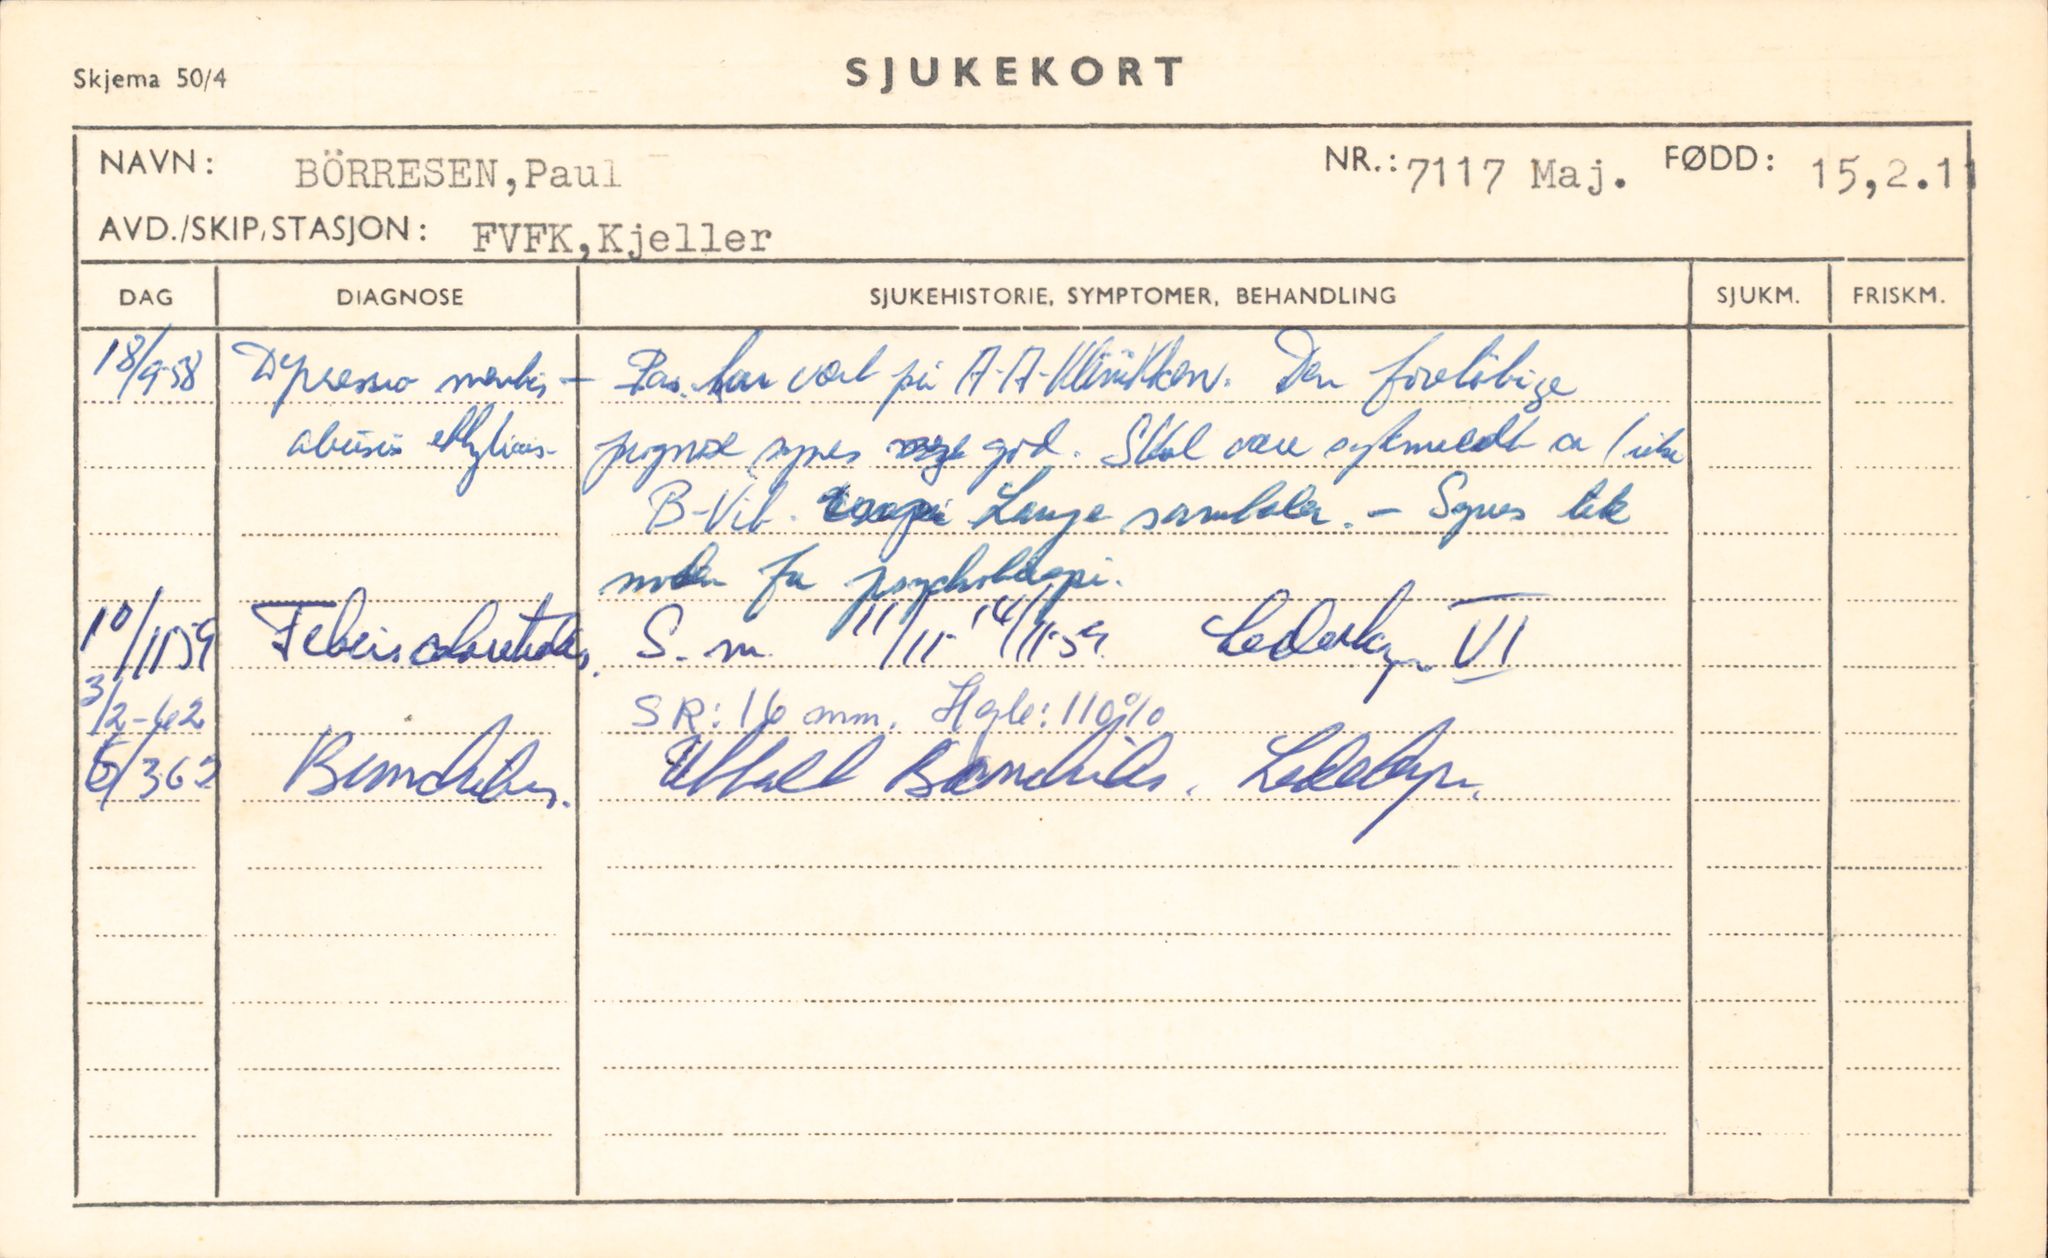 Skjema 50/4
SJUKEKORT
NAVN: BÖRRESEN,Paul NR.: 7117 Maj. FØDD: 15,2.11
AVD./SKIP,STASJON: FVFK,Kjeller
DAG DIAGNOSE SJUKEHISTORIE, SYMPTOMER, BEHANDLING SJUKM. FRISKM.
18/9-58 Depressio mentis – Pas. har vært på A-A-Klinikken. Den foreløbige
abusus ethylicus - prognose synes god. Skal være sykmeldt ca 1 uke
B-Vit. Lange samtaler. – Synes
moden for psychoterapi.
10/11 59 Febris S. m. 11/11- 14/11-59. Lederkyn VI
3/2-62 SR: 16 mm. Hgb: 110%
6/3 62 Bronchitis. Uttalt Bronchitis. Lederkyn.